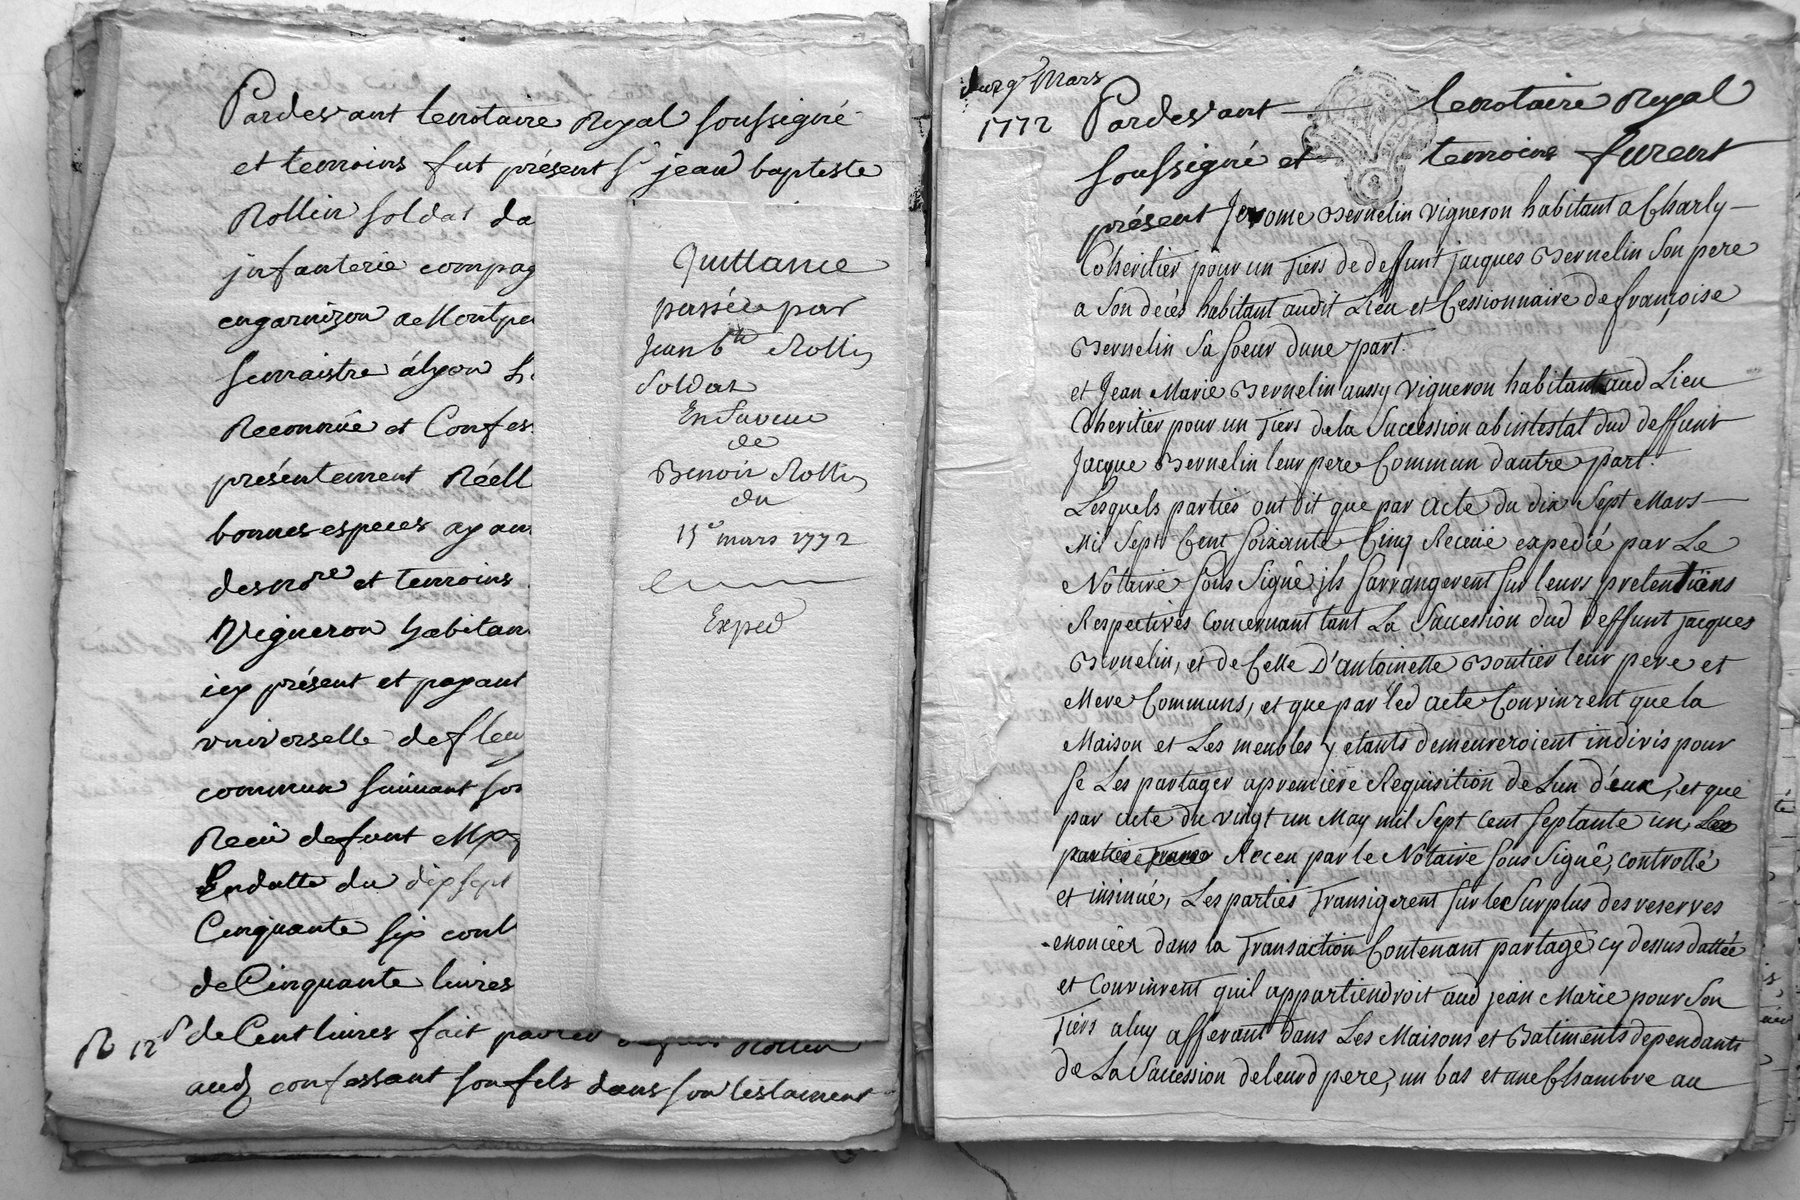 Pardevant le notaire Royal soussigné
et temoins fut présent Sr jean baptiste
Rollin soldat da
infanterie compag
en garnizon a Montpe
semaistre a lyon
Reconnüe et Confes
présentement Réell
bonnes especes ayan
des nore et temoins
Vigneron habitan
icy présent et payant
vniverselle de fleu
commun suivant son
Receu defunt
En datte du dix sept
Cinquante six cont
de Cinquante livres
R 12s de Cent livres fait par
Rollin
aud confessant son fils dans son testament
Quittance
passée par
Jean bte Rollin
Soldat
En faveur
de
Benoit Rollin
du
15e mars 1772
Exped
du 29e Mars
1772
Pardevant le notaire Royal
soussigné et temoins furent
présent Jerome Bernelin vigneron habitant a Charly
Coheritier pour un Tiers de deffunt Jacques Bernelin Son pere
a Son decès habitant audit Lieu et Cessionnaire de françoise
Bernelin Sa Soeur dune part.
et Jean Marie Bernelin aussy vigneron habitant aud Lieu
Coheritier pour un Tiers de la Succession abintestat dud deffunt
Jacque Bernelin leur pere Commun dautre part.
Lesquels parties ont dit que par acte du dix Sept Mars
Mil Sept Cent Soixante Cinq Receüe expedié par Le
Notaire Sous Signé ils Sarrangerent Sur leurs pretentions
Respectives Concernant tant La Succession dud deffunt Jacques
Bernelin, et de Celle D'antoinette Boutier leur pere et
Mere Communs, et que par led acte Convinrent que la
Maison et Les meubles y etants demeureroient indivis pour
Se Les partager a premiere Requisition de Lun d'eux, et que
par acte du vingt un May mil Sept Cent Septante un, Les
parties Receu par le Notaire Sous Signé, controllé
et insinué, Les parties Transigerent Sur le Surplus des reserves
enoncées dans la Transaction Contenant partage cy dessus dattée
et Convinrent quil appartiendroit aud jean Marie pour Son
Tiers a luy afferant dans Les Maisons et Batiments dependants
de La Succession de leurd pere, un bas et une Chambre au